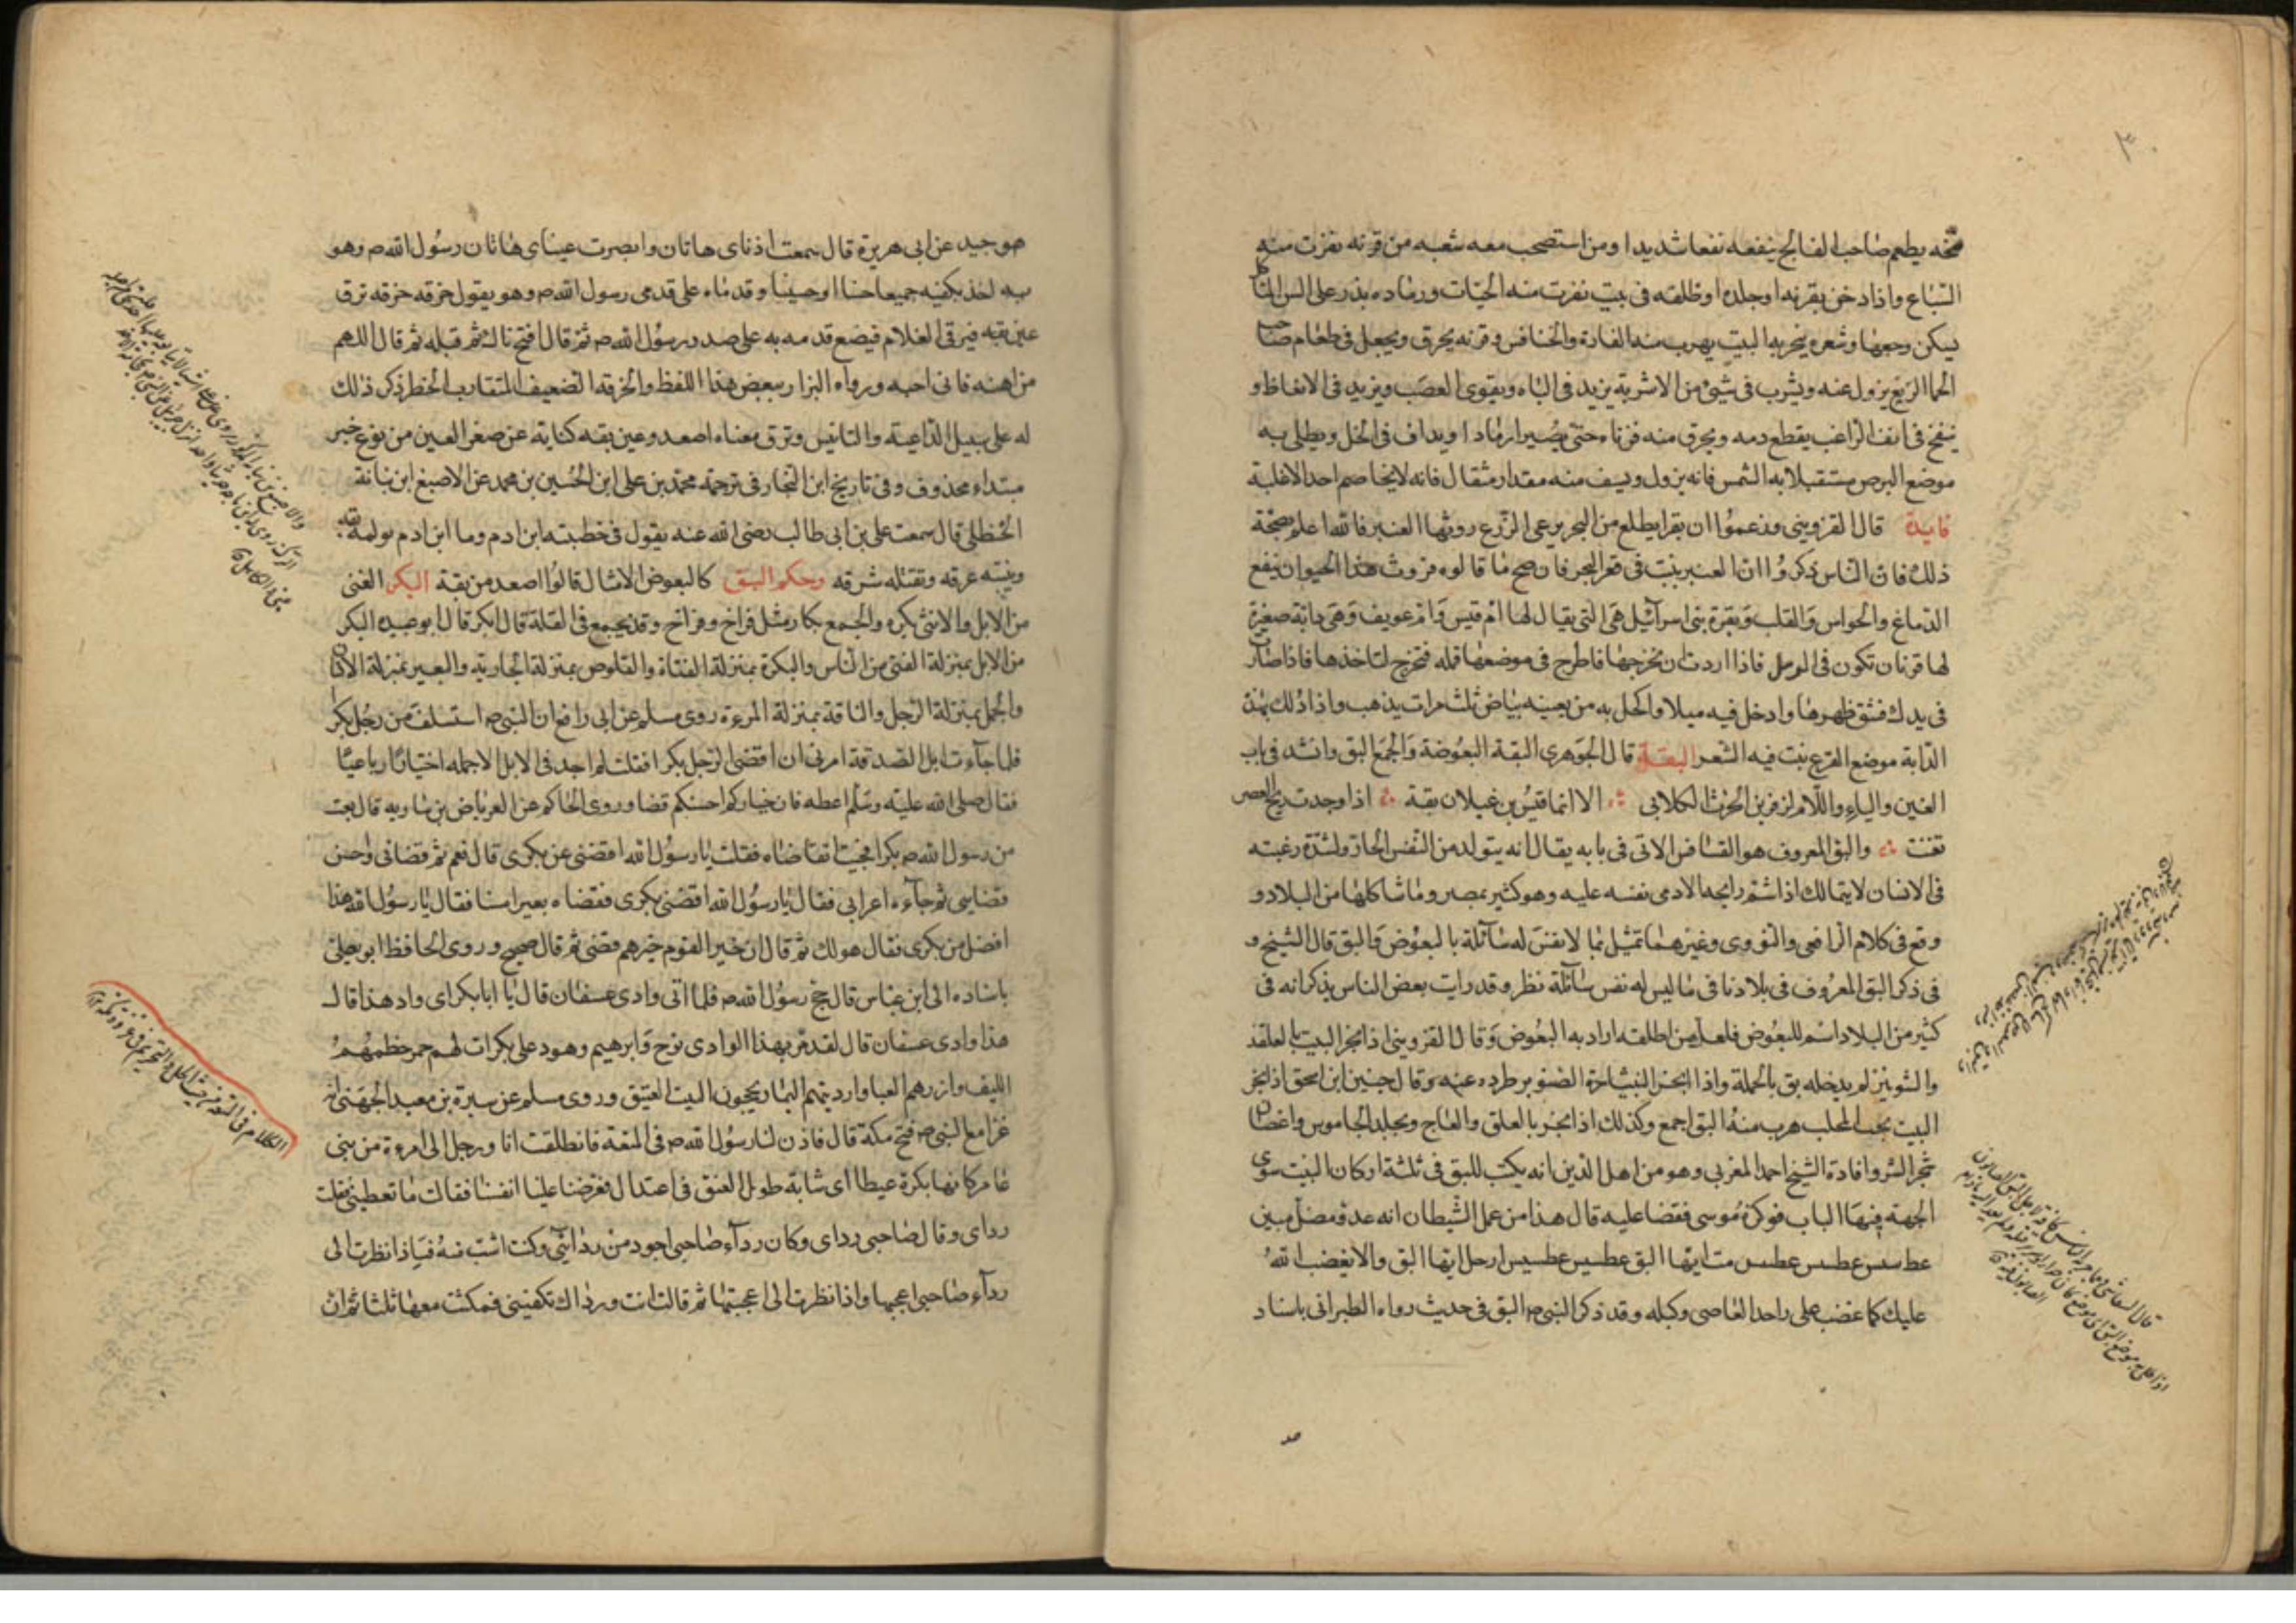 ٣٠
مخه يطعم صاحب الفالج ينفعه نفعا شديدا ومن استصحب معه شعبه من قرنه نفرت منه
السباع واذا دخن بقرنه او جلده او ظلفه فى بيت نفرت منه الحيات ورماده يذر على السن
يسكن وجعها وشعره يبخر به البيت يهرب منه الفارة والخنافس وقرنه يحرق ويجعل فى طعام صاحب
الحما الربع يزول عنه ويشرب فى شئ من الاشربة يزيد فى الباه ويقوى العصب ويزيد فى الانعاظ و
ينفخ فى انف الراعف يقطع دمه ويحرق منه قرناه حتى يصيرا رمادا ويداف فى الخل ويطلى به
موضع البرص مستقبلا به الشمس فانه يزول ويسف منه مقدار مثقال فانه لا يخاصم احدا الا غلبه
فايدة قال القزوينى وزعموا ان بقرا يطلع من البحر يرعى الزرع روثها العنبر فالله اعلم بصحة
ذلك فان الناس ذكروا ان العنبر ينبت فى قعر البحر فان صح ما قالوه فروث هذا الحيوان ينفع
الدماغ والحواس والقلب وبقرة بنى اسرآئيل هى التى يقال لها ام قيس وام عويف وهى دابة صغيرة
لها قرنان تكون فى الرمل فاذا اردت ان تخرجها فاطرح فى موضعها قملة فتخرج لتاخذها فاذا صارت
فى يدك فشق ظهرها وادخل فيه ميلا واكحل به من بعينه بياض ثلث مرات يذهب واذا دلك بهذه
الدابة موضع القرع نبت فيه الشعر البقة قال الجوهرى البقة البعوضة والجمع البق وانشد فى باب
الغين والياء واللام لزفر بن الحرث الكلابى الا انما قيس بن غيلان بقة اذا وجدت ريح العصير
تغنت والبق المعروف هو الفسافس الاتى فى بابه يقال انه يتولد من النفس الحار ولشدة رغبته
فى الانسان لا يتمالك اذا شم رايحه الادمى نفسه عليه وهو كثير بمصر وما شاكلها من البلاد و
وقع فى كلام الرافعى والنووى وغيرهما تمثيل ما لا نفس له سآئلة بالبعوض والبق قال الشيخ و
فى ذكر البق المعروف فى بلادنا فى ما ليس له نفس سآئلة نظر وقد رايت بعض الناس يذكر انه فى
كثير من البلاد اسم للبعوض فلعل من اطلقه اراد به البعوض وقال القزوينى اذا بخر البيت بالقلقند
والشونيز لم يدخله بق بالجملة واذا البخر النبشاحرة الصنوبر طرده عنه وقال حنين ابن اسحق اذا بخر
البيت بحب المحلب هرب منه البق اجمع وكذلك اذا بخر بالعلق والعاج وبجلد الجاموس واغصان
شجر السرو افادة الشيخ احمد المغربى وهو من اهل الدين انه يكتب للبق فى ثلثة اركان البيت سوى
الجهة فيها الباب فوكزه موسى فقضا عليه قال هذا من عمل الشيطان انه عدو مضل مبين
عطسس عطسس عطسس مت ايتها البق عطسيس عطسيس ارحل ايتها البق والا يغضب الله
عليك كما غضب على راحد العاصى وكبله وقد ذكر النبى ص البق فى حديث رواه الطبرانى باسناد
هو جيد عن ابى هريرة قال سمعت اذناى هاتان وابصرت عيناى هاتان رسول الله ص وهو
به اخذ بكفيه جميعا حسنا او حسينا وقدماه على قدمى رسول الله ص وهو يقول حزقه حزقه ترق
عين بقه فيرقى الغلام فيضع قدمه به على صدر رسول الله ص ثم قال افتح فاك ثم قبله ثم قال اللهم
من احبه فانى احبه ورواه البزار ببعض هذا اللفظ والحزقه الضعيف المتقارب الخطو ذكر ذلك
له على سبيل المداعبة والتانيس وترق معناه اصعد وعين بقه كناية عن صغر العين مرفوع خبر
مبتداء محذوف وفى تاريخ ابن النجار فى ترجمة محمد بن على ابن الحسين بن محمد عن الاصبغ ابن نباتة
الحنظلى قال سمعت على بن ابى طالب رضى الله عنه يقول فى خطبته ابن ادم وما ابن ادم تولمه بقه
وينتنه عرقه وتقتله شرقه وحكم البق كالبعوض الامثال قالوا اصعد من بقة البكر الفتى
من الابل والانثى بكره والجمع بكار مثل فراخ وفراخ وقد يجمع فى القلة قال ابكر قال ابو عبيده البكر
من الابل بمنزلة الفتى من الناس والبكرة بمنزلة الفتاة والقلوص بمنزلة الجارية والبعير بمنزلة الانسان
والجمل بمنزلة الرجل والناقة بمنزلة المرءة روى مسلم عن ابى رافع ان النبى ص استسلف من رجل بكرا
فلما جآءت ابل الصدقة امرنى ان اقضى الرجل بكرا فقلت لم اجد فى الابل الا جمله اختيارا رباعيا
فقال صلى الله عليه وسلم اعطه فان خياركم احسنكم قضا وروى الحاكم عن العرباض بن ساريه قال بعت
من رسول الله ص بكرا فجئت اتقاضاه فقلت يا رسول الله اقضنى عن بكرى قال نعم ثم قضانى واحسن
قضايى ثم جآءه اعرابى فقال يا رسول الله اقضنى بكرى فقضاه بعيرا مسنا فقال يا رسول الله هذا
افضل من بكرى فقال هو لك ثم قال ان خير القوم خيرهم قضى ثم قال صحيح وروى الحافظ ابو يعلى
باسناده الى ابن عباس قال حج رسول الله ص فلما اتى وادى عسفان قال يا ابابكر اى واد هذا قال
هذا وادى عسفان قال لقد مر بهذا الوادى نوح وابرهيم وهود على بكرات لهم حمر خطمهم
الليف وازرهم العبا وارديتهم النمار يحجون البيت العتيق وروى مسلم عن سبرة بن معبد الجهنى انه
غزا مع النبى ص فتح مكة قال فاذن لنا رسول الله ص فى المتعة فانطلقت انا ورجل الى امرءة من بنى
عامر كانها بكرة عيطا اى شابة طويل العنق فى اعتدال فعرضنا عليها انفسنا فقالت ما تعطينى فقلت
رداى وقال صاحبى رداى وكان ردآء صاحبى اجود من ردائى وكنت اشب منه فاذا نظرت الى
ردآء صاحبى اعجبها واذا نظرت الى اعجبتها ثم قالت انت ورداك تكفينى فمكثت معها ثلثا ثم ان